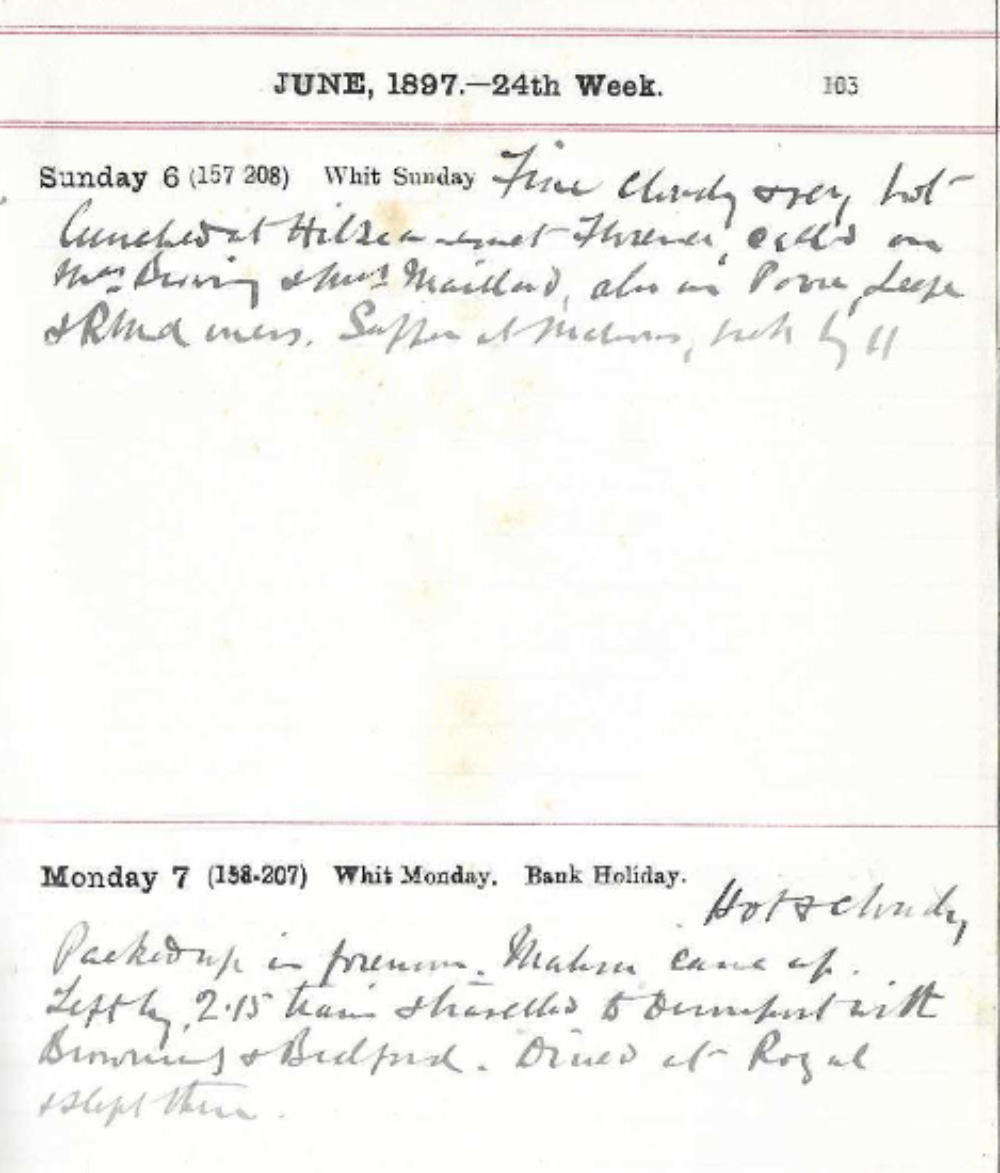 JUNE, 1897.—24th Week. 103
Sunday 6 (157 208) Whit Sunday Fine cloudy & very hot
Lunched at Hilsea & met Florence, called on
Mrs & Mrs Maillard, also in
& RMA mess. Supper at, back by 11
Monday 7 (158-207) Whit Monday. Bank Holiday.
Hot & cloudy
Packed up in forenoon. came up.
Left by 2.15 train & travelled to Devonport with
Browning & Bedford. Dined at Royal
& slept there.